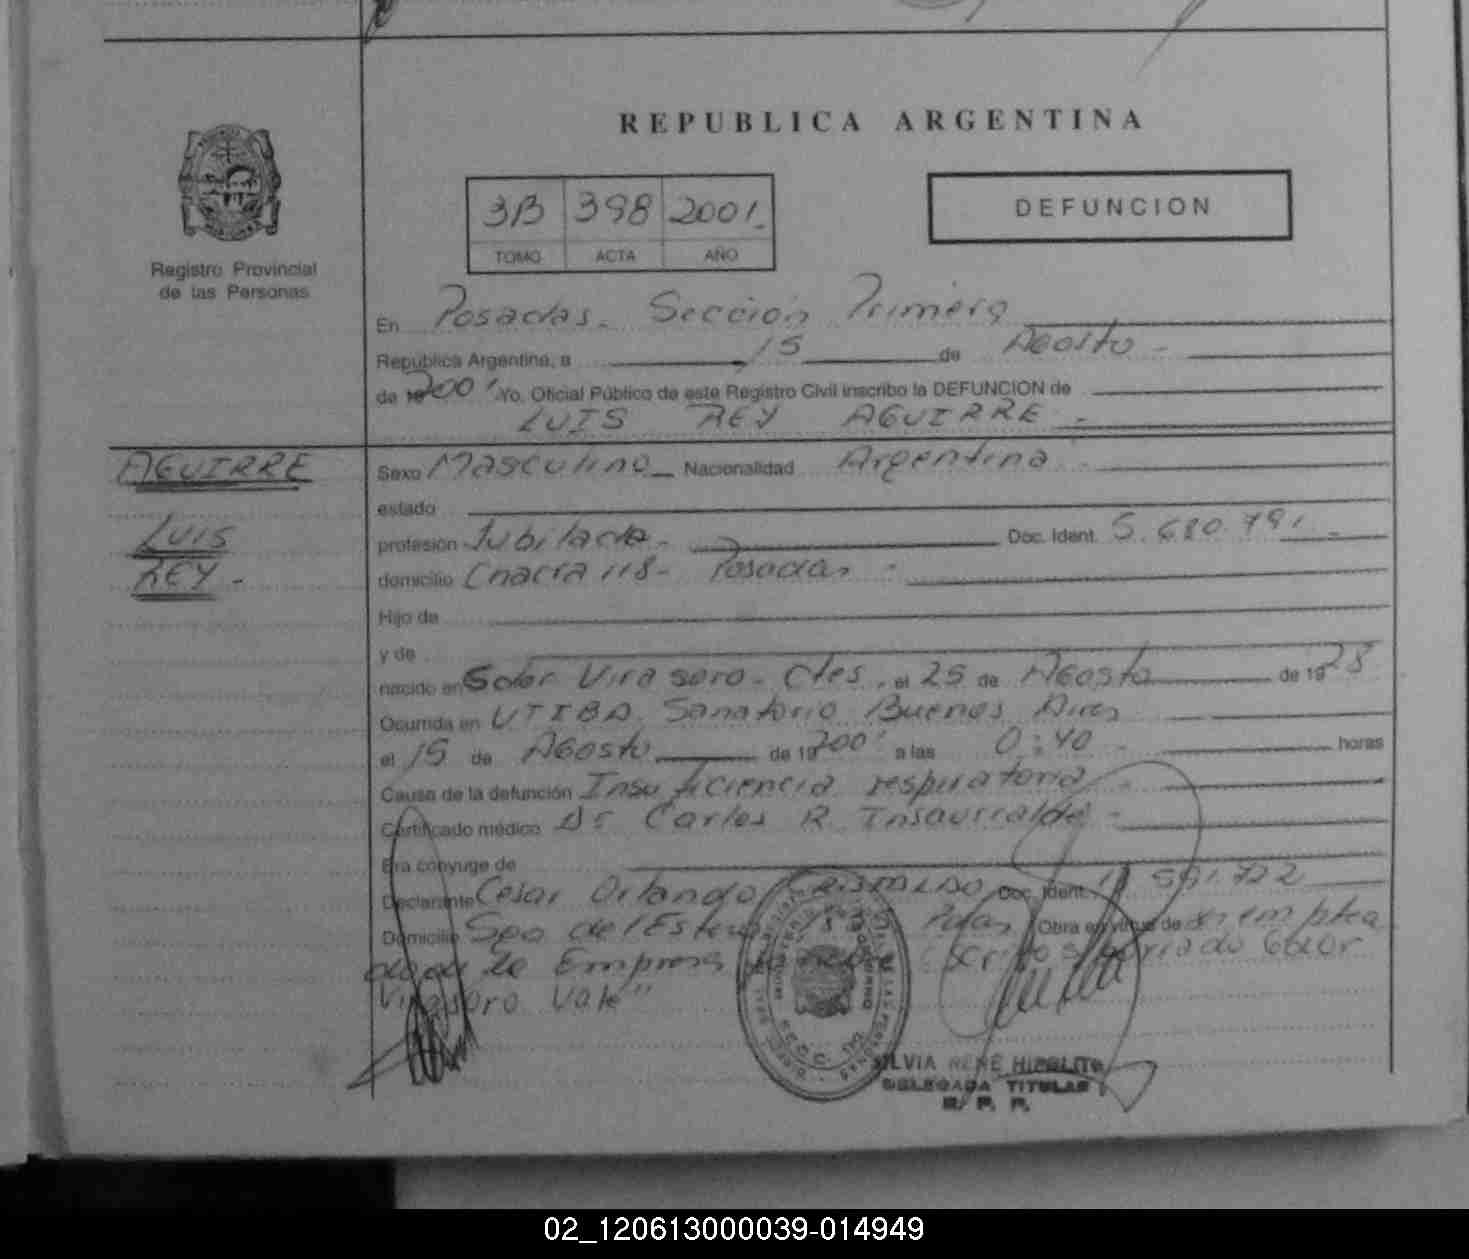 REPUBLICA ARGENTINA
3B 398 2001
TOMO ACTA AÑO
DEFUNCION
Registro Provincial
de las Personas
En Posadas. Sección Primera
República Argentina, a 15 de Agosto
de 19 2001 Yo, Oficial Público de este Registro Civil inscribo la DEFUNCION de
LUIS REY AGUIRRE
AGUIRRE
LUIS
REY
Sexo Masculino Nacionalidad Argentina
estado
profesión Jubilado Doc. Ident. 5.680.791
domicilio Chacra 118 - Posadas
Hijo de
y de
nacido en Gdor Virasoro - Ctes. el 25 de Agosto de 19 28
Ocurrida en UTIBA Sanatorio Buenos Aires
el 15 de Agosto de 19 2001 a las 0:40 horas
Causa de la defunción Insuficiencia respiratoria
Certificado médico Dr Carlos R Insaurralde
Era cónyuge de
Declarante Cesar Orlando Doc. Ident.
Domicilio Sgo del Estero Pdas Obra en virtud de ser emplea
do de Empresa
Virasoro Vale"
SILVIA RENE HIPOLITO
DELEGADA TITULAR
R. P. P.
02_120613000039-014949